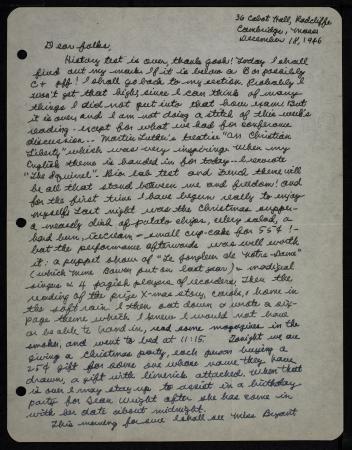 36 Cabot Hall, Radcliffe
Cambridge, Mass
December 18, 1946
Dear folks,
History test is over, thank gosh! Today I shall
find out my mark. If it is below a B or possibly
C+ off! I shall go back to my section. Probably I
won't get that high, since I can think of many
things I did not put into that hour exam! But
it is over, and I am not doing a stitch of this week's
reading - except for what we had for conference
discussion.. Martin Luther's treatise "On Christian
Liberty" which was very inspiring. When my
English theme is handed in for today - I wrote
"The Squirrel". Bio lab test and French there will
be all that stand between me and freedom! and
for the first time I have begun really to enjoy
myself! Last night was the Christmas supper
a measly dish of potato chips, celery salad, a
hard bun, ice cream - small cup-cake for 55¢! -
but the performance afterwards was well worth
it: a puppet show of "Le Jongleur de Notre Dame"
(which Mme Bauer put on last year) - madrigal
singer & 4 pagish players of recorders. Then the
reading of the prize X-mas story, carols, & home in
the soft rain. I then sat down & wrote a six-
page theme which I knew I would not have
or be able to hand in, read some magazines in the
smoker, and went to bed at 11:15. Tonight we are
giving a Christmas party, each person buying a
25¢ gift for some one whose name they have
drawn, a gift with limerick attached. When that
is over I may stay up to assist in a birthday
party for Jean Wright after she has come in
with her date about midnight.
This morning for sure I shall see Miss Bryant